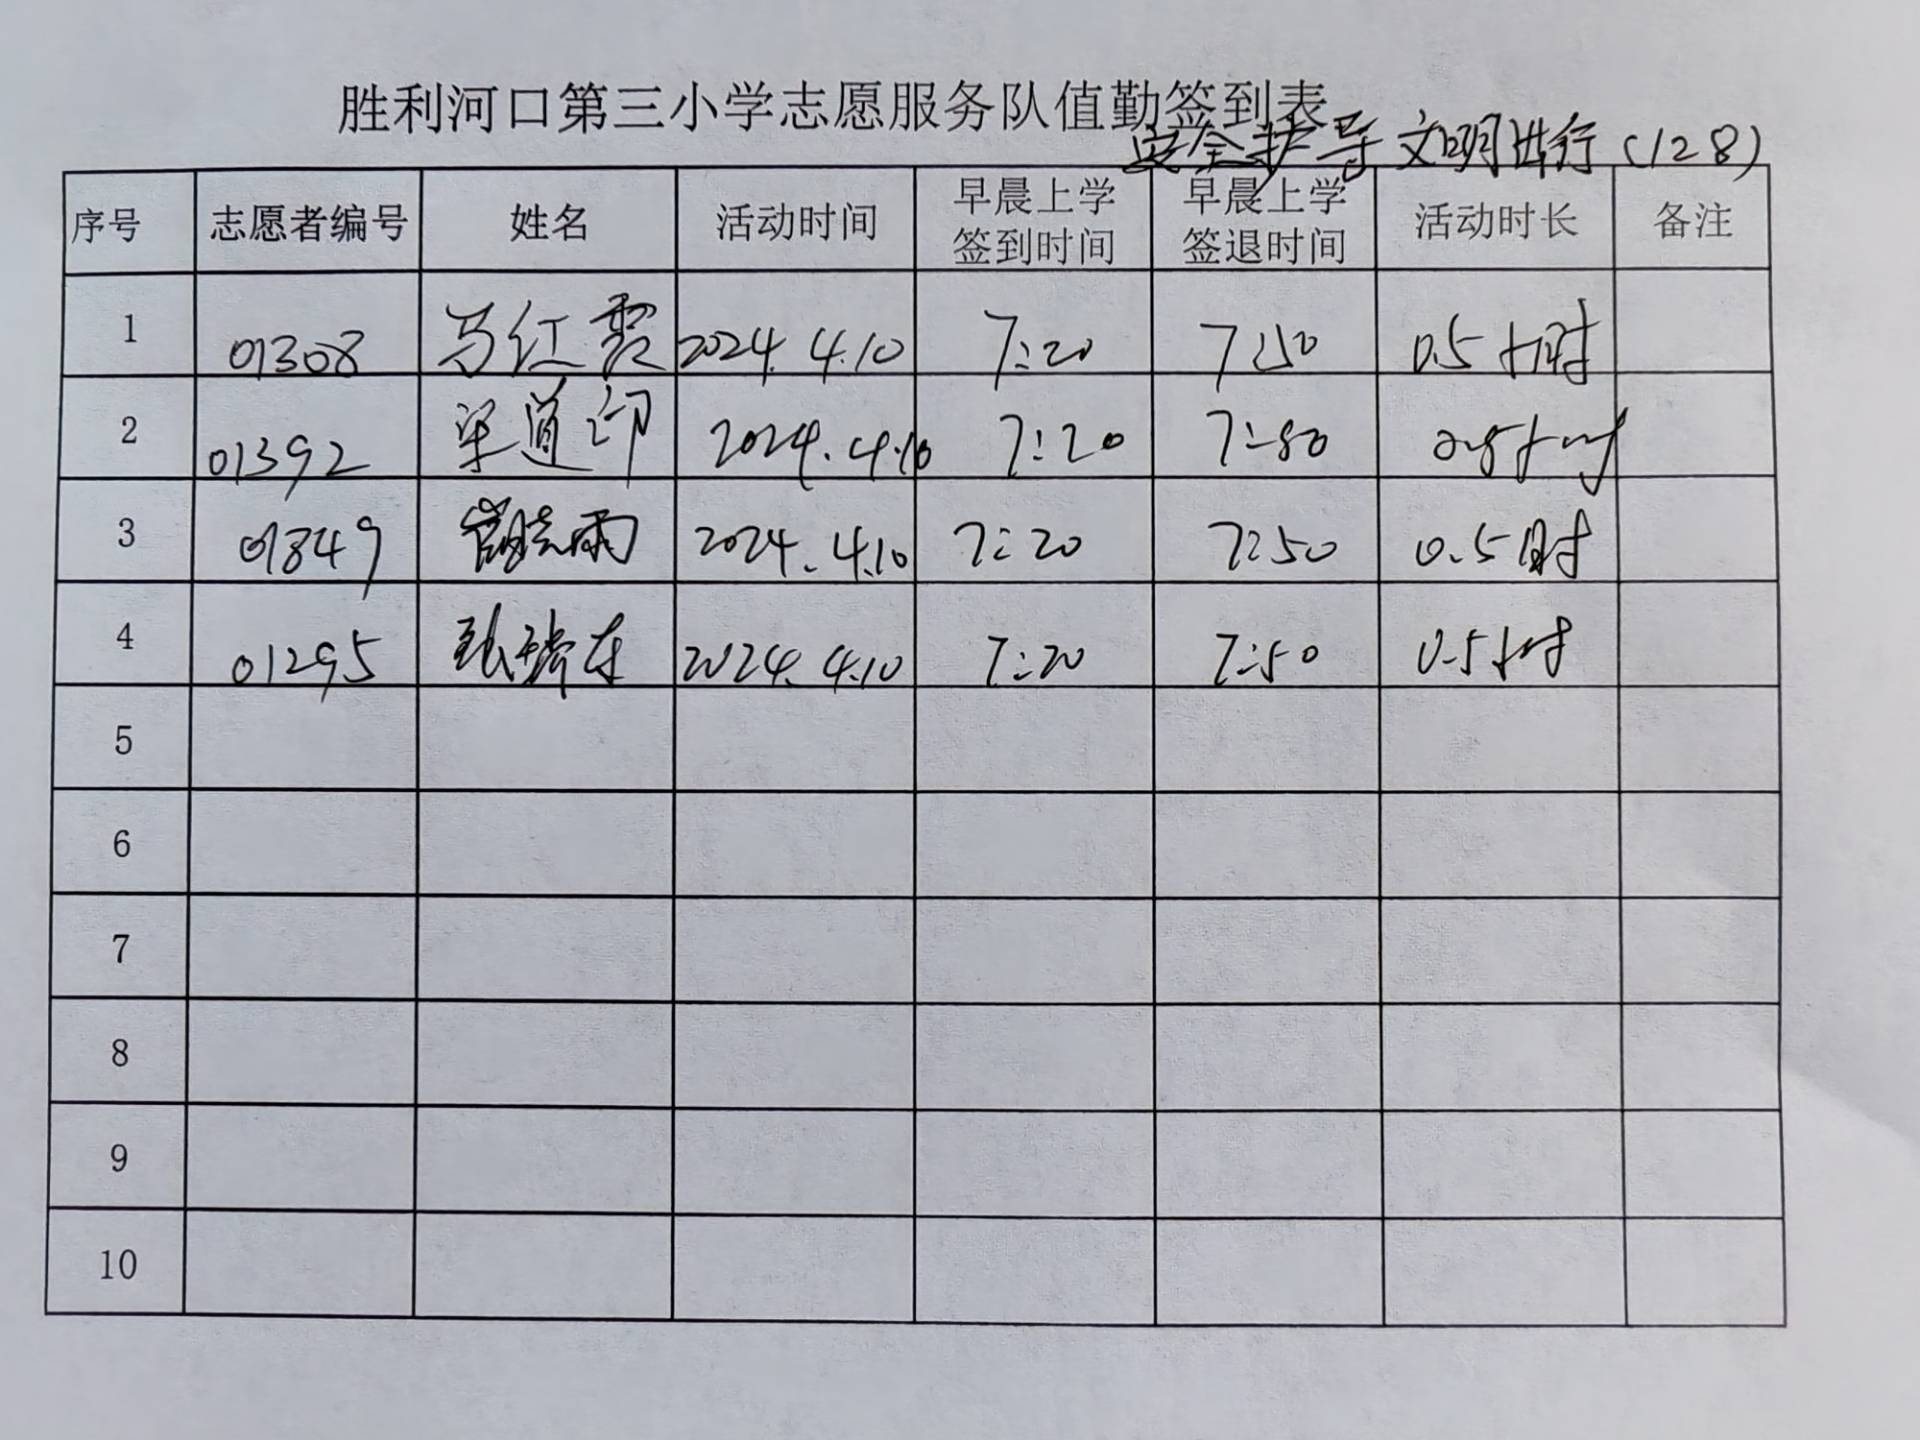 胜利河口第三小学志愿服务队值勤签到表
安全护导 文明出行（128）
序号 志愿者编号 姓名 活动时间 早晨上学签到时间 早晨上学签退时间 活动时长 备注
1 01308 马红霞 2024.4.10 7:20 7:50 0.5小时
2 01392 梁道印 2024.4.10 7:20 7:50 0.5小时
3 01849 雨 2024.4.10 7:20 7:50 0.5时
4 01295 张瑞东 2024.4.10 7:20 7:50 0.5小时
5
6
7
8
9
10